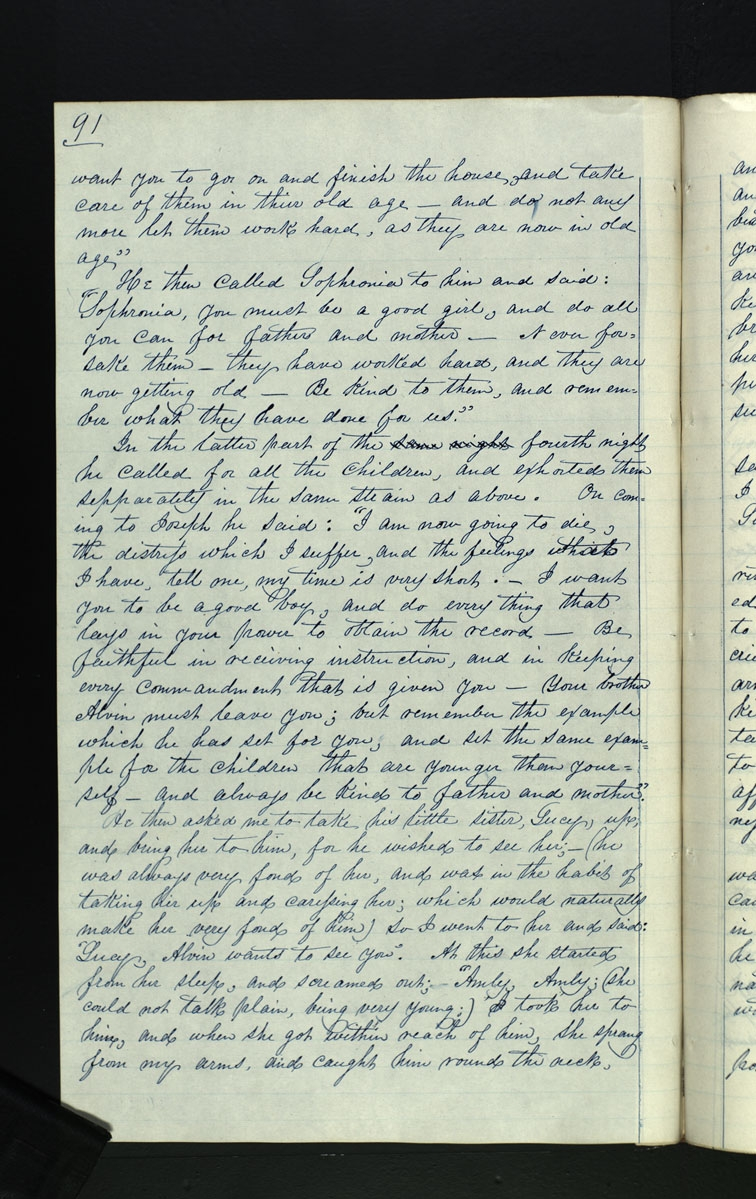 91
want you to go on and finish the house, and take
care of them in thier old age — and do not any
more let them work hard, as they are now in old
age"
He then called Sophronia to him and said:
"Sophronia, you must be a good girl, and do all
you can for father and mother — Never for=
sake them — they have worked hard, and they are
now getting old — Be kind to them, and remem=
ber what they have done for us."
In the latter part of the same night fourth night
he called for all the children, and exhorted them
sepparately in the same strain as above. On com=
ing to Joseph he said: "I am now going to die,
the distress which I suffer, and the feelings which
I have, tell me, my time is very short. — I want
you to be a good boy, and do every thing that
lays in your power to obtain the record — Be
faithful in receiving instruction, and in keeping
every commandment that is given you — Your brother
Alvin must leave you; but remember the example
which he has set for you, and set the same exam=
ple for the children that are younger then your=
self — and always be kind to father and mother".
He then asked me to take his little sister, Lucy, up,
and bring her to him, for he wished to see her; — (he
was always very fond of her, and was in the habit of
taking her up and caressing her; which would naturally
make her very fond of him) so I went to her and said:
"Lucy, Alvin wants to see you". At this she started
from her sleep, and screamed out; — "Amby, Amby; (she
could not talk plain, being very young;) I took her to
him, and when she got within reach of him, she sprang
from my arms, and caught him round the neck,